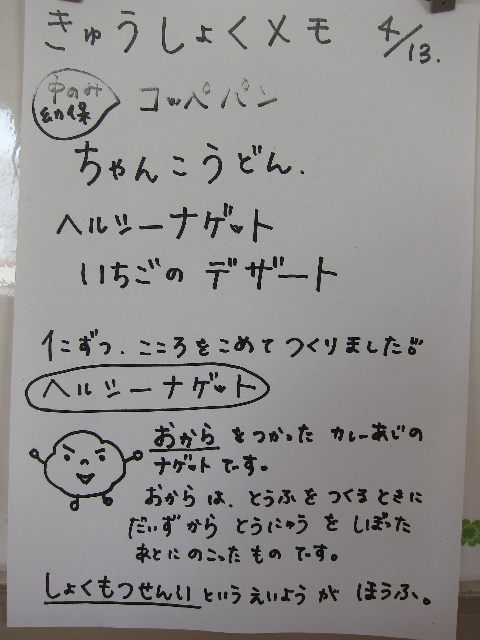 きゅうしょくメモ 4/13.
中のみ
幼保
コッペパン
ちゃんこうどん.
ヘルシーナゲット
いちごの デザート
1こずつ、こころをこめて つくりました!!
ヘルシーナゲット
おから をつかった カレーあじの
ナゲット です。
おから は、とうふを つくるときに
だいずから とうにゅう を しぼった
あとに のこった もの です。
しょくもつせんい という えいよう が ほうふ。